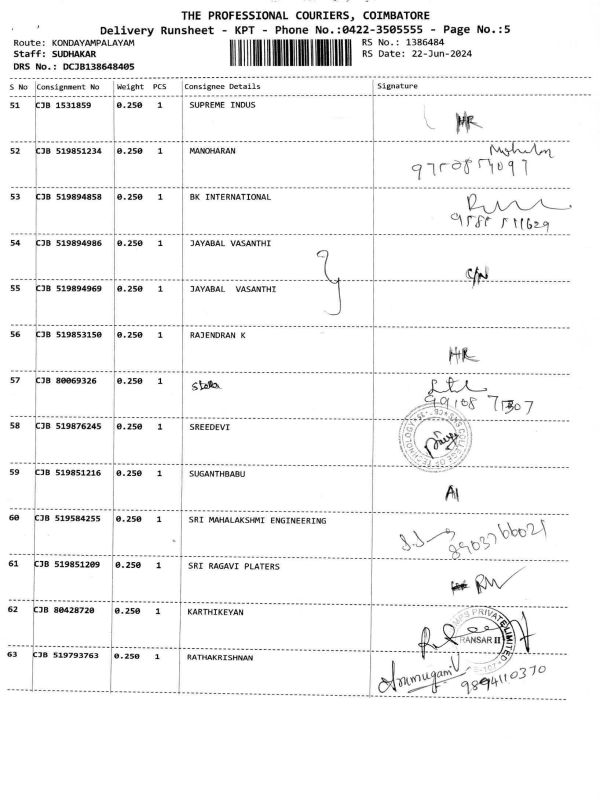 THE PROFESSIONAL COURIERS, COIMBATORE
Delivery Runsheet - KPT - Phone No.:0422-3505555 - Page No.:5
Route: KONDAYAMPALAYAM RS No.: 1386484
Staff: SUDHAKAR RS Date: 22-Jun-2024
DRS No.: DCJB138648405
S No Consignment No Weight PCS Consignee Details Signature
51 CJB 1531859 0.250 1 SUPREME INDUS HR
52 CJB 519851234 0.250 1 MANOHARAN
53 CJB 519894858 0.250 1 BK INTERNATIONAL
54 CJB 519894986 0.250 1 JAYABAL VASANTHI
C/N
55 CJB 519894969 0.250 1 JAYABAL VASANTHI
56 CJB 519853150 0.250 1 RAJENDRAN K
HR
57 CJB 80069326 0.250 1 Stella
58 CJB 519876245 0.250 1 SREEDEVI
59 CJB 519851216 0.250 1 SUGANTHBABU
AI
60 CJB 519584255 0.250 1 SRI MAHALAKSHMI ENGINEERING
8903766021
61 CJB 519851209 0.250 1 SRI RAGAVI PLATERS
62 CJB 80428720 0.250 1 KARTHIKEYAN
PRIVATE LIMITED
63 CJB 519793763 0.250 1 RATHAKRISHNAN
Arumugam
9894110370